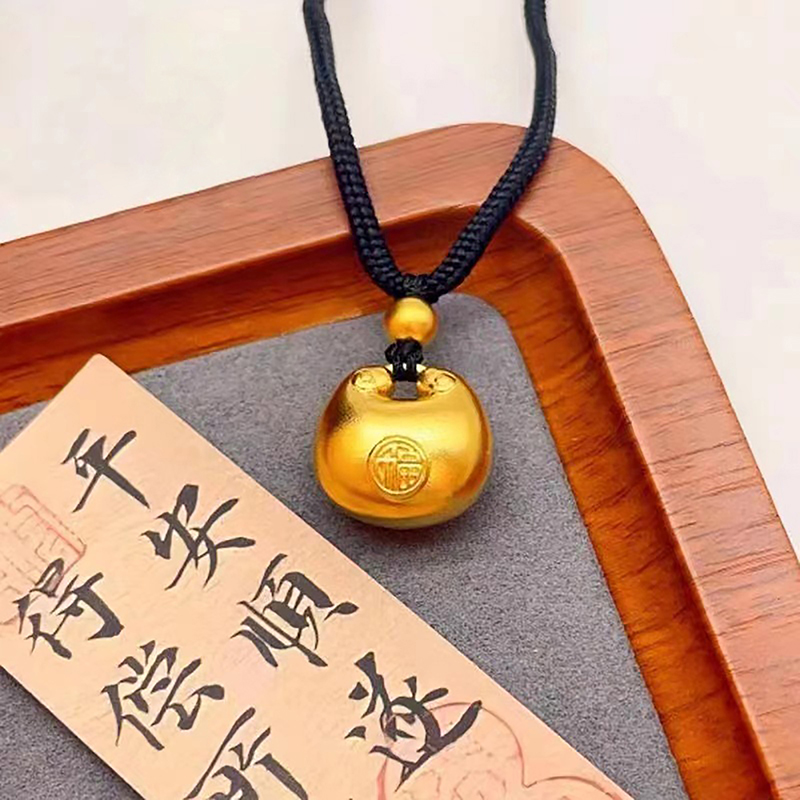 福
平安順遂
得偿所